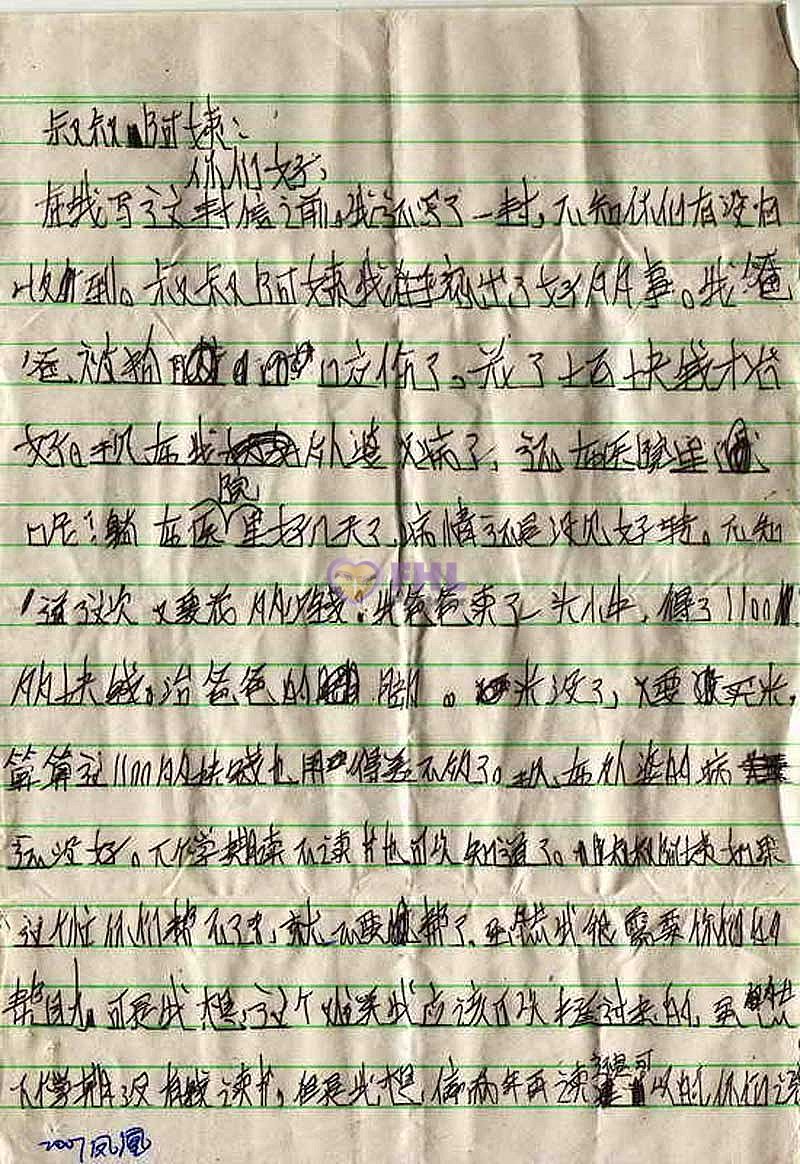 叔叔阿姨：
你们好，
在我写了这封信之前，我还写了一封，不知你们有没有
收到。叔叔阿姨我家出了好的事。我爸
爸被咬伤了，花了上百块钱才治
好。现在我外婆又病了，还在医院里
院
呢！躺在医里好几天了，病情还是没见好转。不知
道这次又要花多少钱，我爸爸卖了一头小牛，得了1100
块钱。治爸爸的脚。米没了，又要买米，
算算这1100块钱也用得差不多了。现在外婆的病
还没好。下个学期读不读书也可以知道了。叔叔阿姨如果
这个忙你们帮不了，就不要帮了，虽然我很需要你们的
帮助，可是我想，这个如果我应该可以挺过去的，虽然
下个学期没有钱读书，但是我想，停两年再读还是可以的，你们说
2007凤凰
FHL